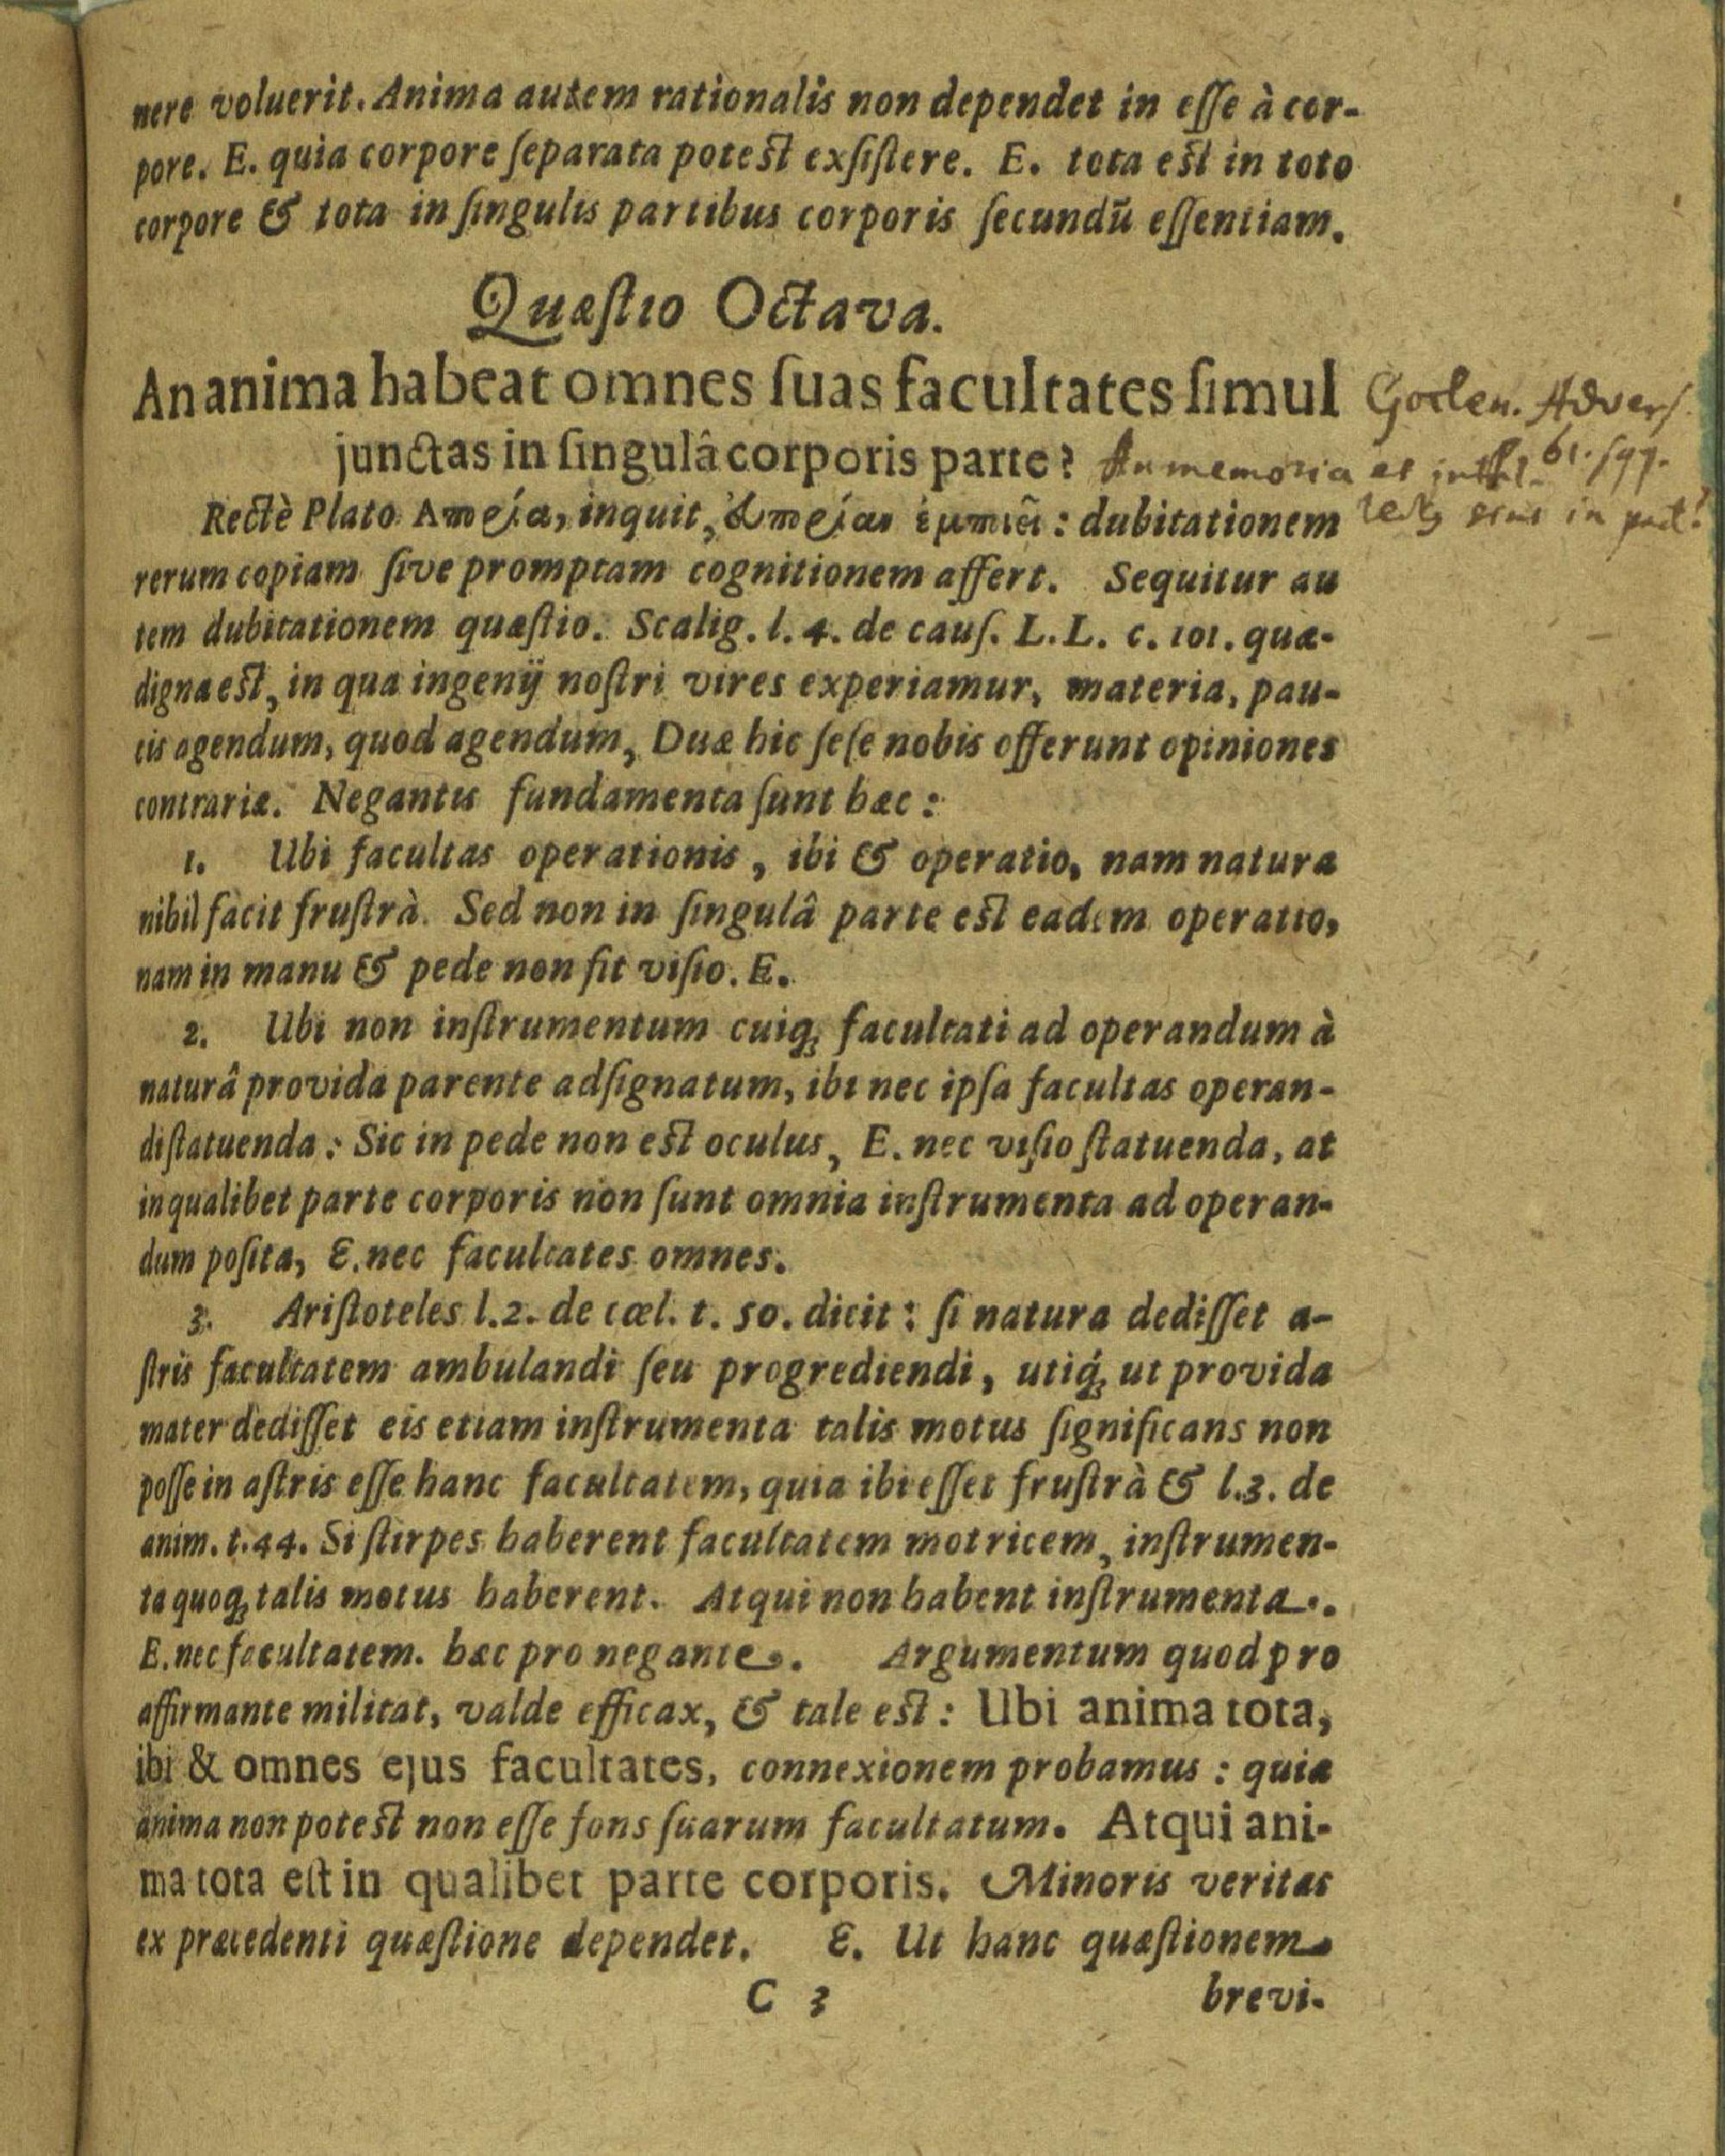 nere voluerit. Anima autem rationalis non dependet in eſſe à cor-
pore. E. quia corpore ſeparata poteſt exſiſtere. E. tota eſt in toto
corpore & tota in ſingulis partibus corporis ſecundū eſſentiam.
Quæſtio Octava.
An anima habeat omnes ſuas facultates ſimul
Goclen. Adverſ.
junctas in ſingulâ corporis parte?
61. ſqq.
An memoria et
Rectè Plato Ἀπορία, inquit, : dubitationem
sint in
rerum copiam ſive promptam cognitionem affert. Sequitur au
tem dubitationem quæſtio. Scalig. l. 4. de cauſ. L. L. c. 101. quæ-
digna eſt, in qua ingenij noſtri vires experiamur, materia, pau-
cis agendum, quod agendum, Duæ hic ſeſe nobis offerunt opiniones
contrariæ. Negantis fundamenta ſunt hæc:
1. Ubi facultas operationis, ibi & operatio, nam natura
nihil facit fruſtrà. Sed non in ſingulâ parte eſt eadem operatio,
nam in manu & pede non fit viſio. E.
2. Ubi non inſtrumentum cuiq; facultati ad operandum à
naturâ provida parente adſignatum, ibi nec ipſa facultas operan-
di ſtatuenda: Sic in pede non eſt oculus, E. nec viſio ſtatuenda, at
in qualibet parte corporis non ſunt omnia inſtrumenta ad operan-
dum poſita, E. nec facultates omnes.
3. Ariſtoteles l. 2. de cœl. t. 50. dicit: ſi natura dediſſet a-
ſtris facultatem ambulandi ſeu progrediendi, utiq́; ut provida
mater dediſſet eis etiam inſtrumenta talis motus ſignificans non
poſſe in aſtris eſſe hanc facultatem, quia ibi eſſet fruſtrà & l. 3. de
anim. t. 44. Si ſtirpes haberent facultatem motricem, inſtrumen-
ta quoq; talis motus haberent. Atqui non habent inſtrumenta.
E. nec facultatem. hæc pro negante. Argumentum quod pro
affirmante militat, valde efficax, & tale eſt: Ubi anima tota,
ibi & omnes ejus facultates, connexionem probamus: quia
anima non poteſt non eſſe fons ſuarum facultatum. Atqui ani-
ma tota eſt in qualibet parte corporis. Minoris veritas
ex præcedenti quæſtione dependet. E. Ut hanc quæſtionem
C 3 brevi-